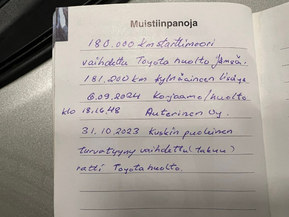 Muistiinpanoja
180.000 km starttimoori
vaihdettu Toyota huolto Jämsä.
181.200 km kylmäaineen lisäys
6.09.2024 Korjaamo/huolto
klo 18.16.48 Auterinen Oy.
31.10.2023 Kuskin puoleinen
turvatyyny vaihdettu (takuu)
ratti Toyota huolto